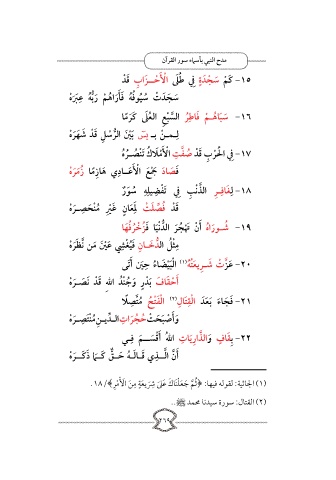 مدح النبي بأسماء سور القرآن
١٥- كَمْ سَجْدَةٍ فِي طُلَى الْأَحْزَابِ قَدْ
سَجَدَتْ سُيُوفُهُ فَأَرَاهُمْ رَبُّهُ عِبَرَهْ
١٦- سَبَاهُمْ فَاطِرُ السَّبْعِ الْعُلَى كَرَمًا
لِمَنْ بِـ يس بَيْنَ الرُّسْلِ قَدْ شَهَرَهْ
١٧- فِي الْحَرْبِ قَدْ صُفَّتِ الْأَمْلَاكُ تَنْصُرُهُ
فَصَادَ جَمْعَ الْأَعَادِي هَازِمًا زُمَرَهْ
١٨- لِغَافِرِ الذَّنْبِ فِي تَفْضِيلِهِ سُوَرٌ
قَدْ فُصِّلَتْ لِمَعَانٍ غَيْرِ مُنْحَصِرَهْ
١٩- شُورَاهُ أَنْ تَهْجُرَ الدُّنْيَا فَزُخْرُفُهَا
مِثْلُ الدُّخَانِ فَيُغْشِي عَيْنَ مَن نَّظَرَهْ
٢٠- عَزَّتْ شَرِيعَتُهُ(١) الْبَيْضَاءُ حِينَ أَتَى
أَحْقَافَ بَدْرٍ وَجُنْدُ اللهِ قَدْ نَصَرَهْ
٢١- فَجَاءَ بَعْدَ الْقِتَالِ(٢) الْفَتْحُ مُتَّصِلًا
وَأَصْبَحَتْ حُجُرَاتُ الدِّينِ مُنْتَصِرَهْ
٢٢- بِقَافٍ وَالذَّارِيَاتِ اللهُ أَقْسَمَ فِي
أَنَّ الَّذِي قَالَهُ حَقٌّ كَمَا ذَكَرَهْ
(١) الجاثية: لقوله فيها: ﴿ثُمَّ جَعَلْنَاكَ عَلَى شَرِيعَةٍ مِنَ الْأَمْرِ﴾/١٨.
(٢) القتال: سورة سيدنا محمد ﷺ..
٢٦٩